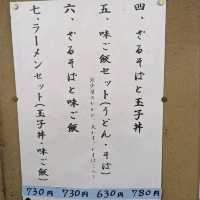 四、ざるそばと玉子丼
780円
五、味ご飯セット(うどん・そば)
630円
六、ざるそばと味ご飯
730円
七、ラーメンセット(玉子丼・味ご飯)
730円